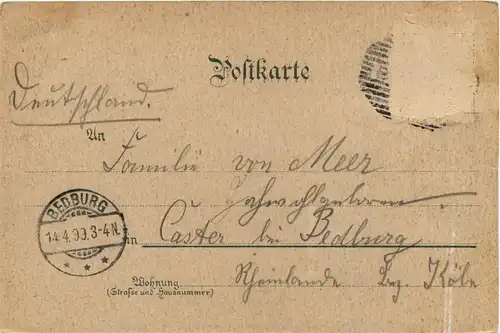 Postkarte
Deutschland.
An
Familie von Meer
BEDBURG
14.4.99.3-4N.
in Caster bei Bedburg
Rheinlande Bz. Köln
Wohnung
(Strasse und Hausnummer)